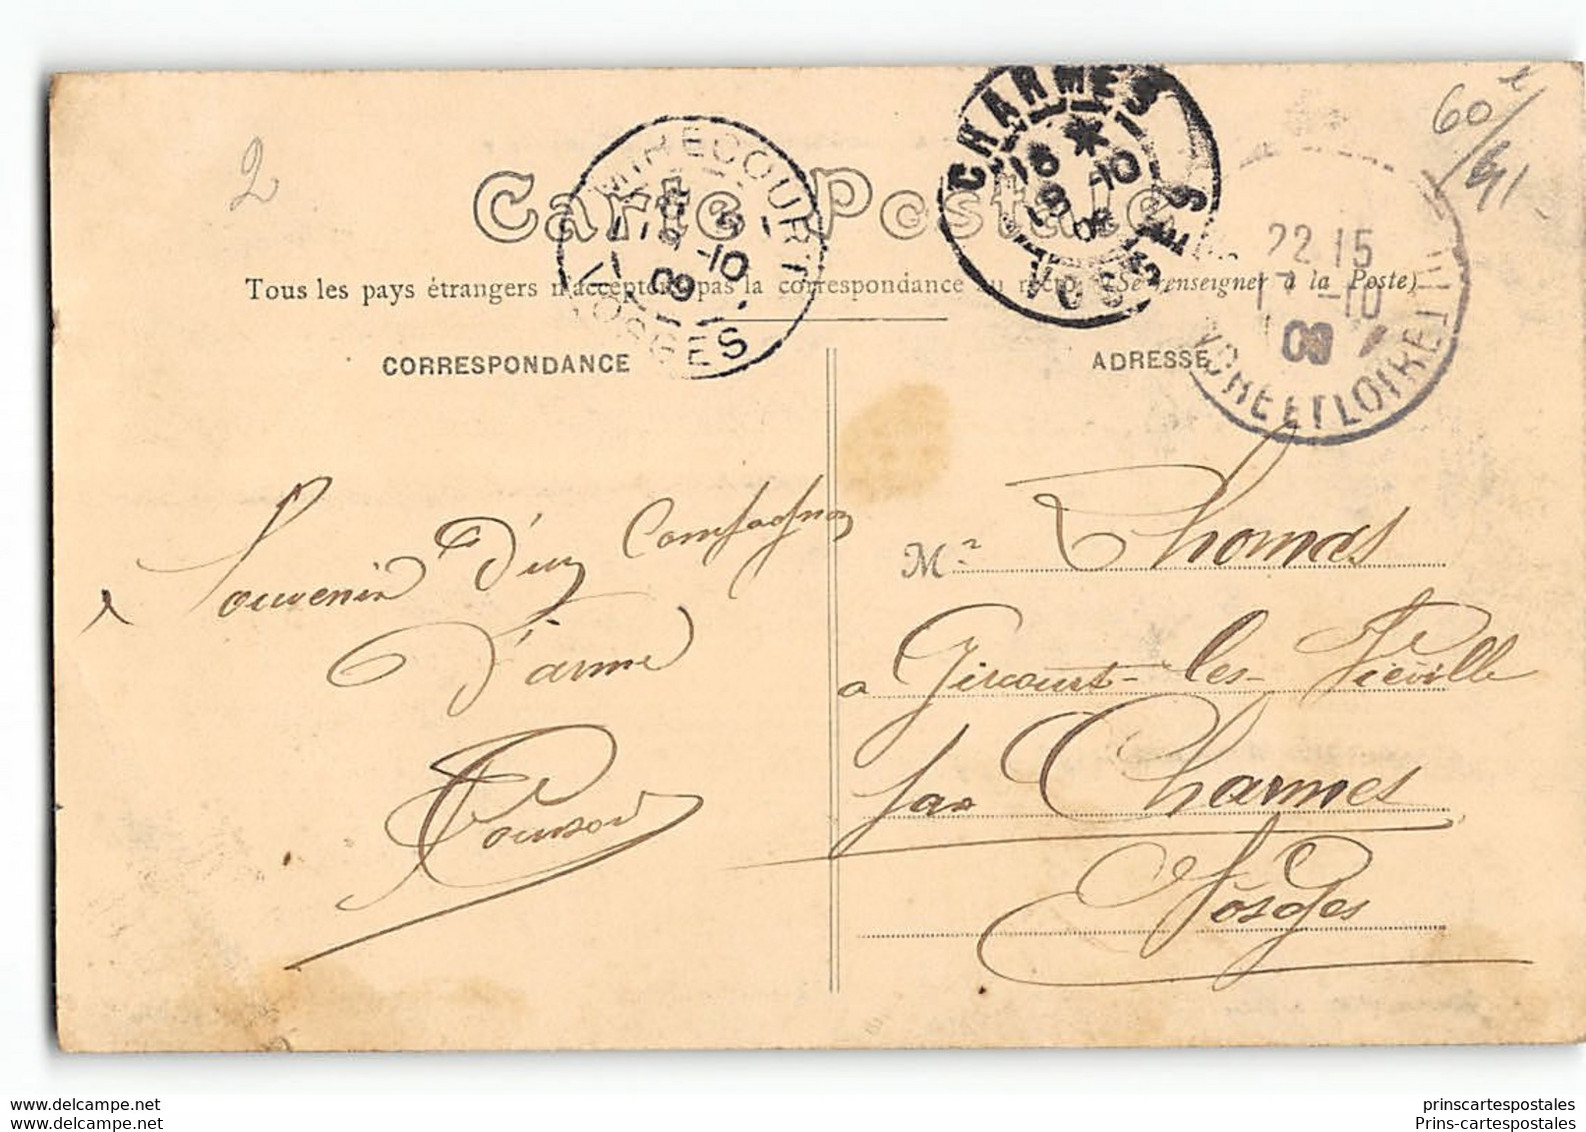 2
60
Carte Postale
MIRECOURT
10
09
VOSGES
CHARMES
18 * 10
09
VOSGES
22 15
17 -10
09
INDRE ET LOIRE
Tous les pays étrangers n'acceptent pas la correspondance au recto (Se renseigner à la Poste)
CORRESPONDANCE
ADRESSE
Souvenir d'un Compagnon
d'arme
Mr Thomas
a Gircourt-les-Viéville
par Charmes
Vosges
www.delcampe.net
Prins-cartespostales.com
prinscartespostales
Prins-cartespostales